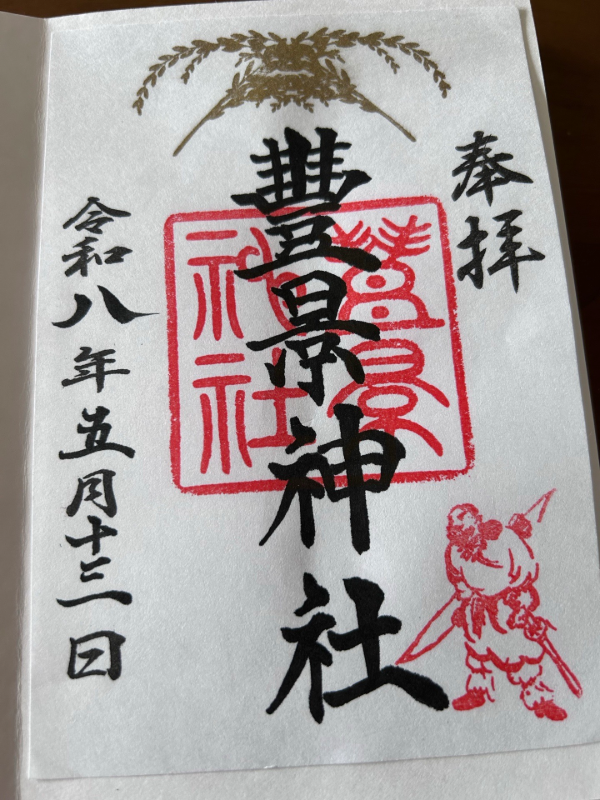 奉拝
豊景神社
豊景神社
令和八年五月十三日